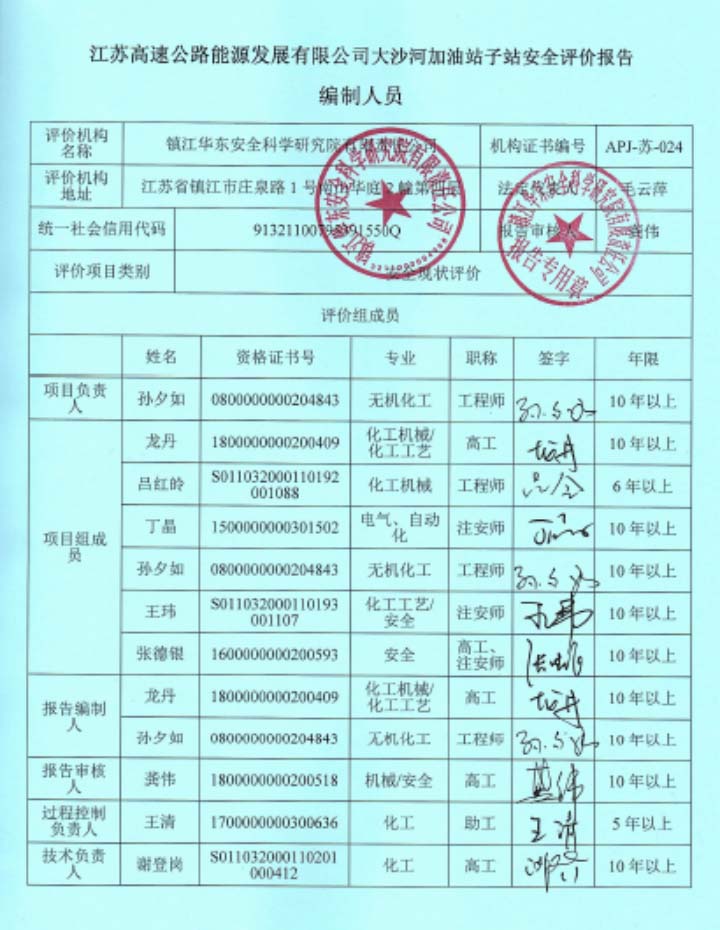 江苏高速公路能源发展有限公司大沙河加油站子站安全评价报告
编制人员
评价机构名称 镇江华东安全科学研究院有限责任公司 机构证书编号 APJ-苏-024
评价机构地址 江苏省镇江市庄泉路1号南山华庭2幢第四层 法定代表人 毛云萍
统一社会信用代码 报告审核人 龚伟
评价项目类别 安全现状评价
评价组成员
姓名 资格证书号 专业 职称 签字 年限
项目负责人 孙夕如 0800000000204843 无机化工 工程师 孙夕如 10年以上
项目组成员 龙丹 1800000000200409 化工机械/化工工艺 高工 龙丹 10年以上
吕红皊 S011032000110192001088 化工机械 工程师 6年以上
丁晶 1500000000301502 电气、自动化 注安师 丁晶 10年以上
孙夕如 0800000000204843 无机化工 工程师 孙夕如 10年以上
王玮 S011032000110193001107 化工工艺/安全 注安师 王玮 10年以上
张德银 1600000000200593 安全 高工、注安师 张德银 10年以上
报告编制人 龙丹 1800000000200409 化工机械/化工工艺 高工 龙丹 10年以上
孙夕如 0800000000204843 无机化工 工程师 孙夕如 10年以上
报告审核人 龚伟 1800000000200518 机械/安全 高工 龚伟 10年以上
过程控制负责人 王清 1700000000300636 化工 助工 王清 5年以上
技术负责人 谢登岗 S011032000110201000412 化工 高工 10年以上
镇江华东安全科学研究院有限责任公司
镇江华东安全科学研究院有限责任公司
报告专用章